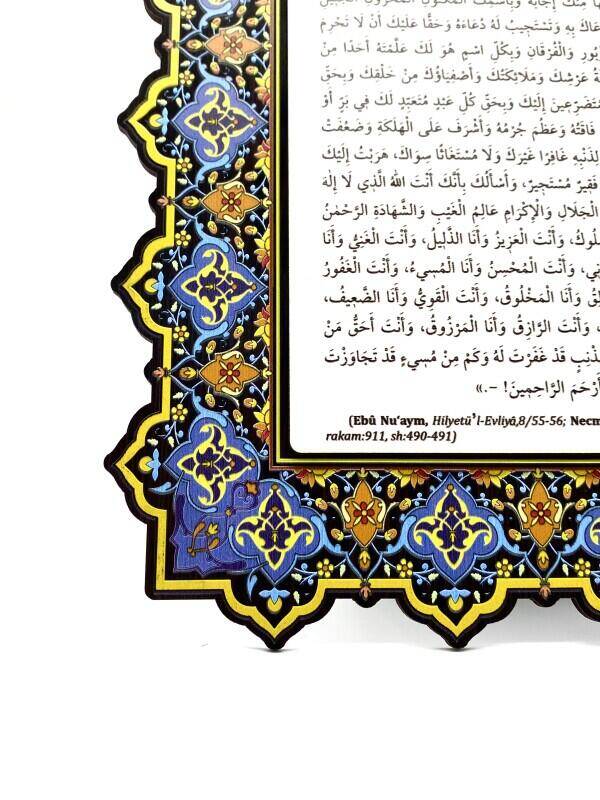 مِنْكَ إِجَابَةً وَبِاسْمِكَ الْمَكْنُونِ الْمَخْزُونِ الْجَلِيلِ
عَاكَ بِهِ وَتَسْتَجِيبُ لَهُ دُعَاءَهُ وَحَقًّا عَلَيْكَ أَنْ لَا تَحْرِمَ
وَالْفُرْقَانِ وَبِكُلِّ اسْمٍ هُوَ لَكَ عَلَّمْتَهُ أَحَدًا مِنْ
عَرْشِكَ وَمَلَائِكَتُكَ وَأَصْفِيَاؤُكَ مِنْ خَلْقِكَ وَبِحَقِّ
إِلَيْكَ وَبِحَقِّ كُلِّ عَبْدٍ مُتَعَبِّدٍ لَكَ فِي بَرٍّ أَوْ
فَاقَتُهُ وَعَظُمَ جُرْمُهُ وَأَشْرَفَ عَلَى الْهَلَكَةِ وَضَعُفَتْ
لِذَنْبِهِ غَافِرًا غَيْرَكَ وَلَا مُسْتَغَاثًا سِوَاكَ، هَرَبْتُ إِلَيْكَ
فَقِيرٌ مُسْتَجِيرٌ، وَأَسْأَلُكَ بِأَنَّكَ أَنْتَ اللهُ الَّذِي لَا إِلٰهَ
الْجَلَالِ وَالْإِكْرَامِ عَالِمُ الْغَيْبِ وَالشَّهَادَةِ الرَّحْمٰنُ
وَأَنْتَ الْعَزِيزُ وَأَنَا الذَّلِيلُ، وَأَنْتَ الْغَنِيُّ وَأَنَا
وَأَنْتَ الْمُحْسِنُ وَأَنَا الْمُسِيءُ، وَأَنْتَ الْغَفُورُ
وَأَنَا الْمَخْلُوقُ، وَأَنْتَ الْقَوِيُّ وَأَنَا الضَّعِيفُ،
وَأَنْتَ الرَّازِقُ وَأَنَا الْمَرْزُوقُ، وَأَنْتَ أَحَقُّ مَنْ
قَدْ غَفَرْتَ لَهُ وَكَمْ مِنْ مُسِيءٍ قَدْ تَجَاوَزْتَ
أَرْحَمَ الرَّاحِمِينَ! –.»
(Ebû Nu‘aym, Hilyetü’l-Evliyâ,8/55-56; Necm
rakam:911, sh:490-491)